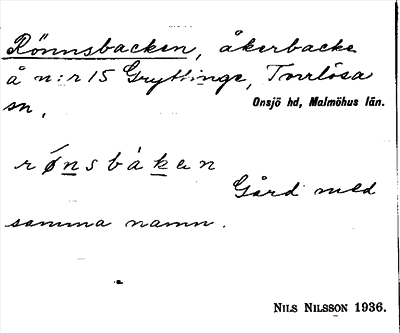 Rönnsbacken, åkerbacke
å n:r 15 Gryttinge, Torrlösa
sn,
Onsjö hd, Malmöhus län.
rønsbákan
Gård med
samma namn.
NILS NILSSON 1936.